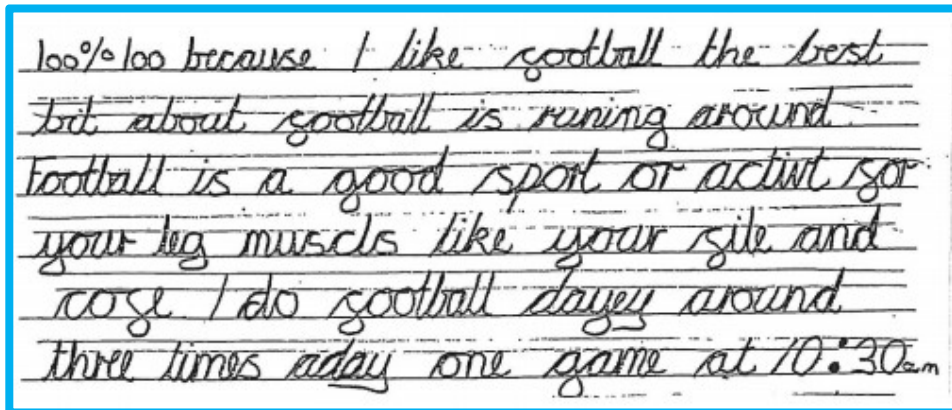 100%100 because I like football the best
bit about football is runing around
Football is a good sport or activt for
your leg muscls like your file and
cofe I do football dayey around
three times aday one game at 10:30am